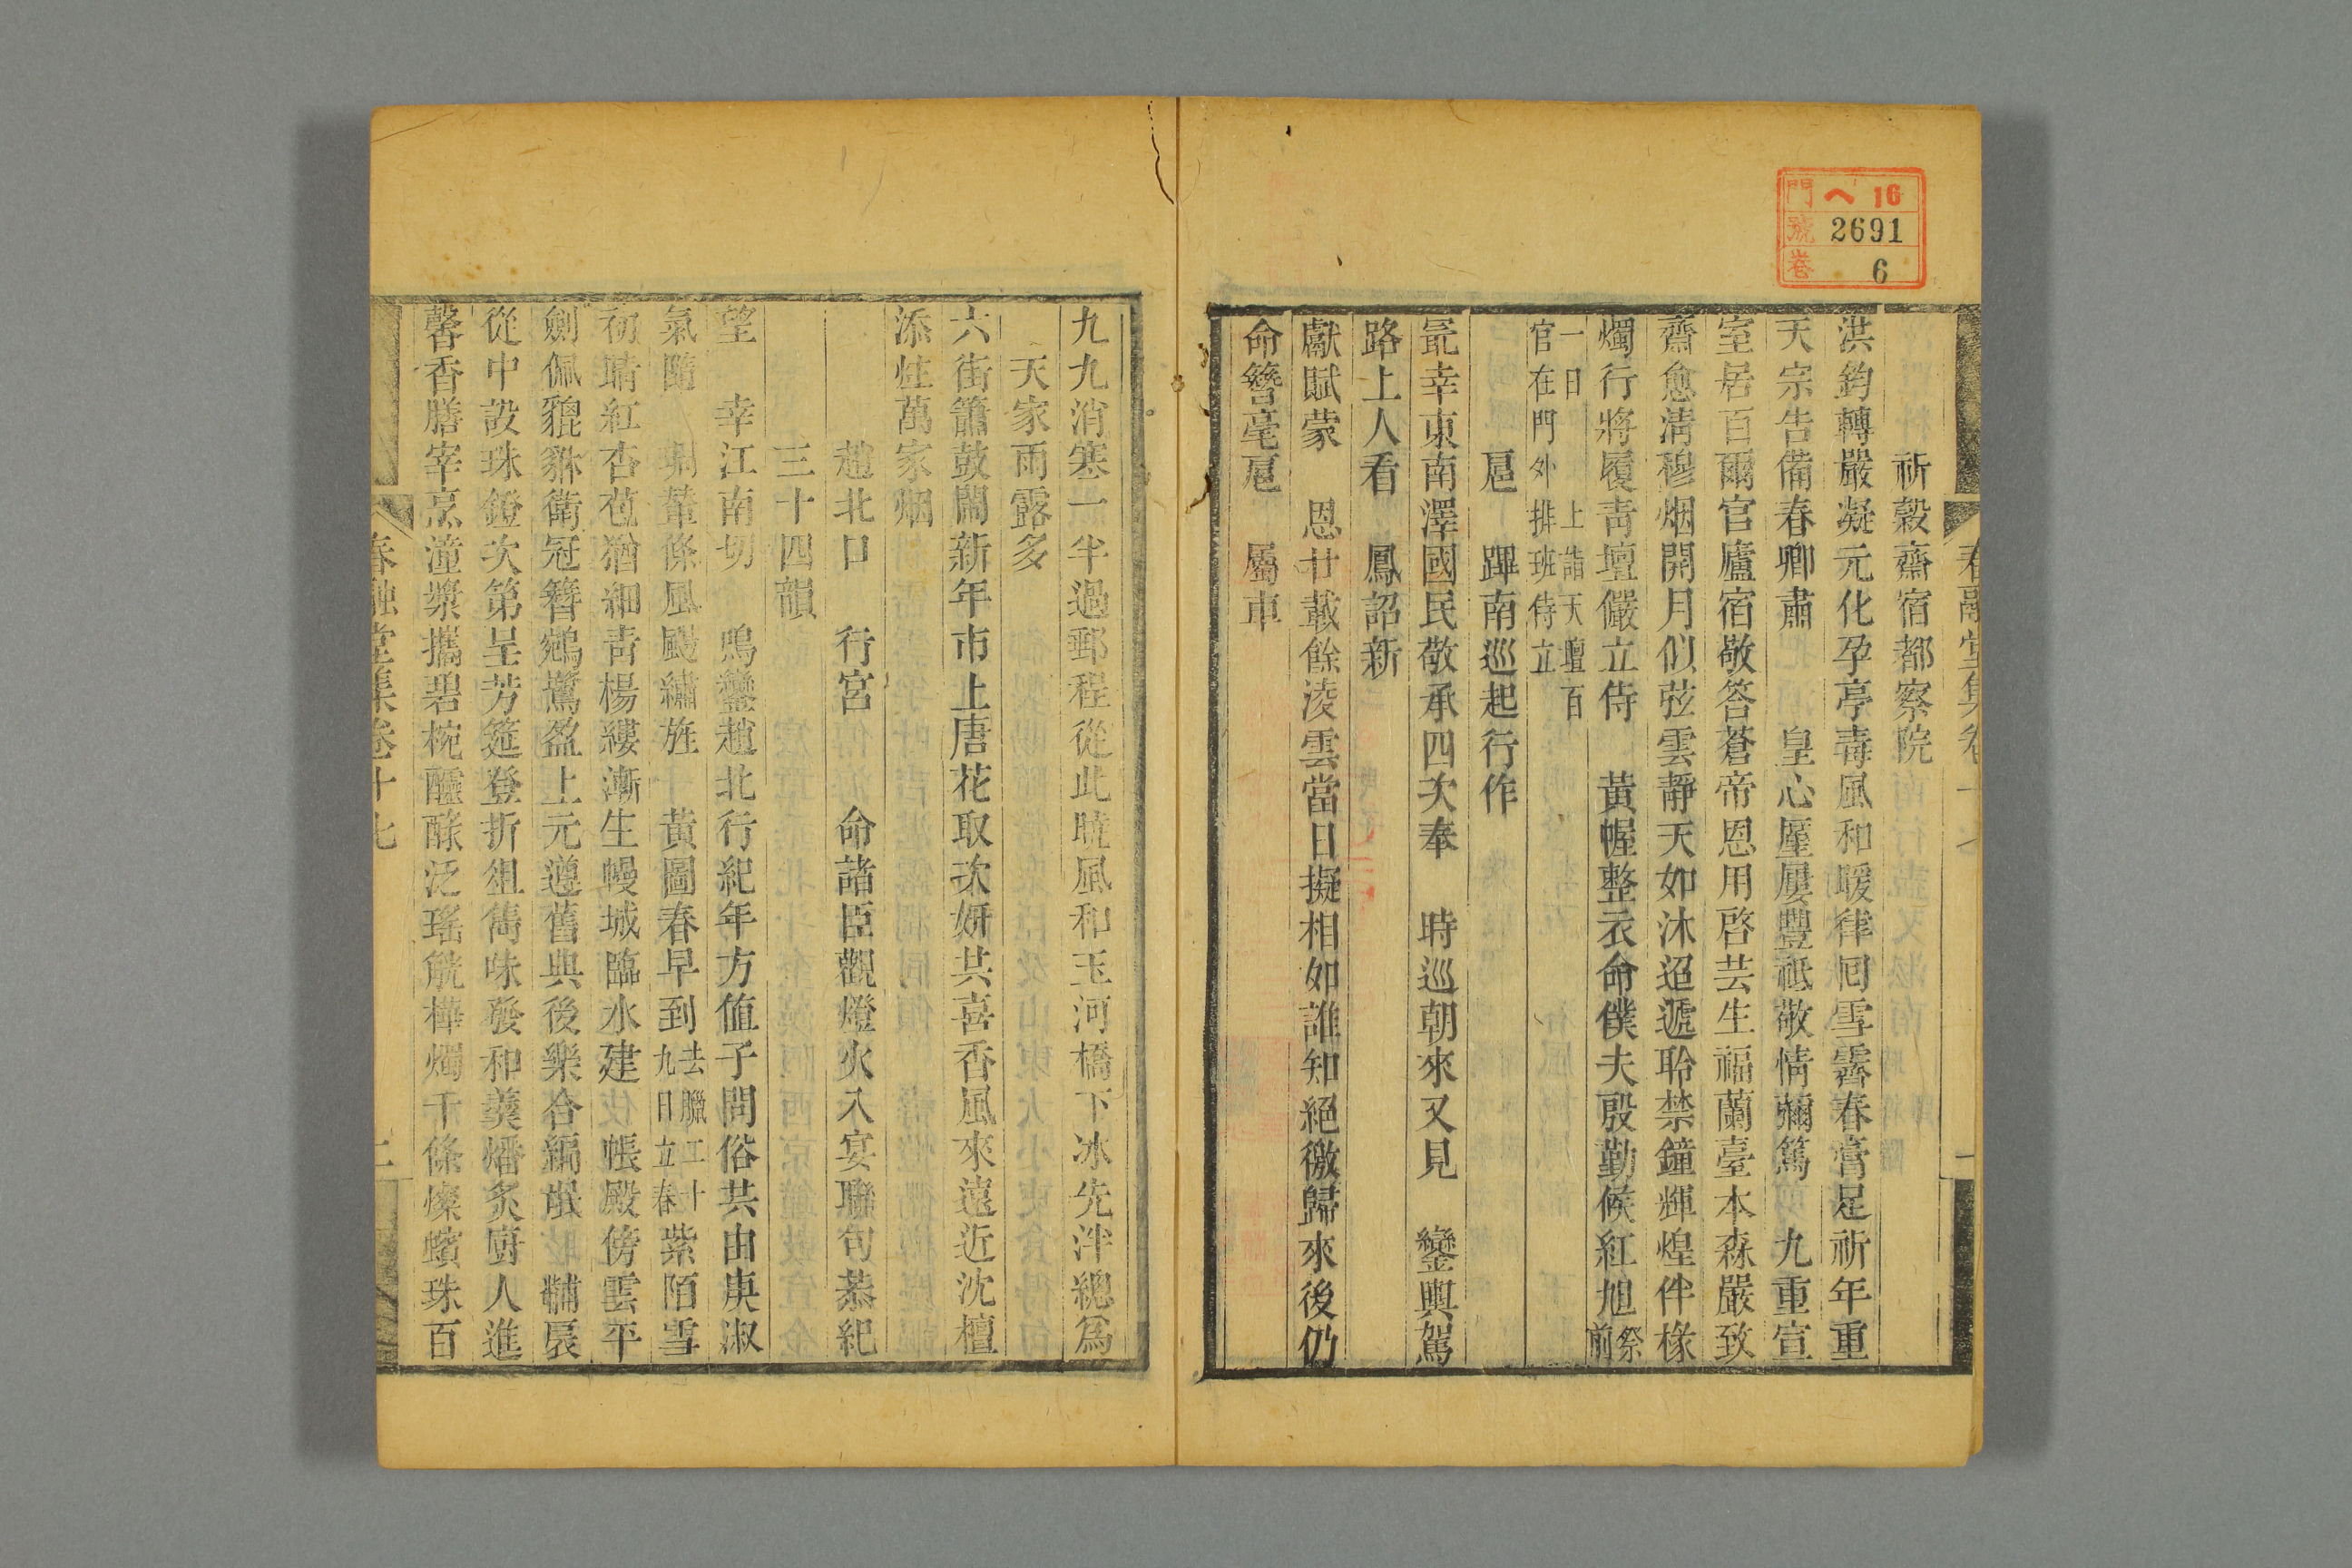 門 ヘ 16
號 2691
卷 6
春融堂集卷十七
祈穀齋宿都察院
洪鈞轉嚴凝元化孕亭毒風和暖律囘雪霽春膏足祈年重
天宗告備春卿肅 皇心屢屢豐祗敬情彌篤 九重宣
室居百爾官廬宿敬答蒼帝恩用啓芸生福蘭臺本森嚴致
齋愈清穆烟開月似弦雲靜天如沐迢遞聆禁鐘輝煌伴椽
燭行將履青壇儼立侍 黃幄整衣命僕夫殷勤候紅旭 祭前
一日 上詣天壇百
官在門外排班侍立
扈 蹕南巡起行作
冣幸東南澤國民敬承四次奉 時巡朝來又見 鑾輿駕
路上人看 鳳詔新
獻賦蒙 恩廿載餘淩雲當日擬相如誰知絕徼歸來後仍
命簪毫扈 屬車
九九消寒一半過郵程從此曉風和玉河橋下冰先泮總爲
天家雨露多
六街簫鼓鬧新年市上唐花取次妍共喜香風來遠近沈檀
添炷萬家烟
趙北口 行宮 命諸臣觀燈火入宴聯句恭紀
三十四韻
望 幸江南切 鳴鑾趙北行紀年方值子問俗共由庚淑
氣隨 輦條風颺繡旌 黃圖春早到 去臘二十九日立春 紫陌雪
初晴紅杏苞猶細青楊縷漸生幔城臨水建 帳殿傍雲平
劍佩貔貅衛冠簪鵷鷺盈上元遵舊典後樂合編氓 黼扆
從中設珠鐙次第呈芳筵登折俎雋味發和羹燔炙廚人進
馨香膳宰烹潼漿攜碧椀醽醁泛瑤觥樺燭千條燦蠙珠百
春融堂集卷十七 二